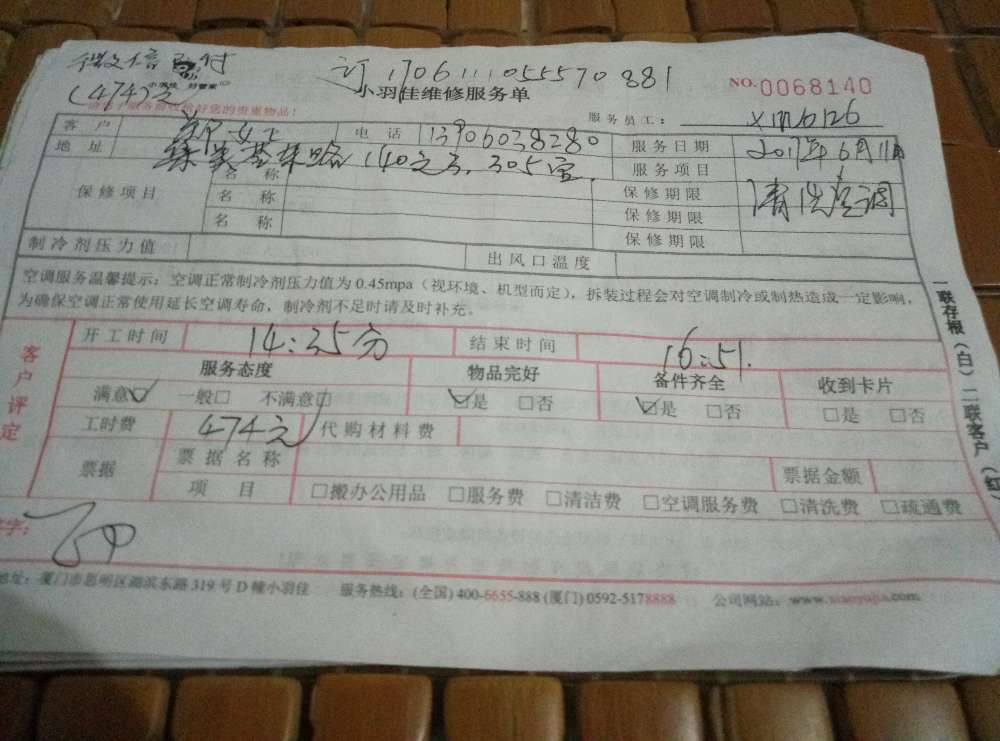 微信支付
(474)元
订 1706111055570881
小羽佳维修服务单
NO.0068140
好您的贵重物品!
服务员工: xm6126
客户 女士 电话 13906038280 服务日期 2017年6月11日
地址 140之3, 305室 服务项目 清洗空调
保修项目 名称 保修期限
名称 保修期限
名称 保修期限
制冷剂压力值 出风口温度
空调服务温馨提示:空调正常制冷剂压力值为 0.45mpa(视环境、机型而定),拆装过程会对空调制冷或制热造成一定影响,
为确保空调正常使用延长空调寿命,制冷剂不足时请及时补充。
客户评定
开工时间 14:35分 结束时间 16:51.
服务态度 物品完好 备件齐全 收到卡片
满意☑ 一般□ 不满意□ ☑是 □否 ☑是 □否 □是 □否
工时费 474元 代购材料费
票据 票据名称 票据金额
项目 □搬办公用品 □服务费 □清洁费 □空调服务费 □清洗费 □疏通费
字:
地址:厦门市思明区湖滨东路 319 号 D 幢小羽佳 服务热线:(全国) 400-6655-888 (厦门) 0592-5178888 公司网站:www.xiaoyujia.com
一联存根(白)二联客户(红)